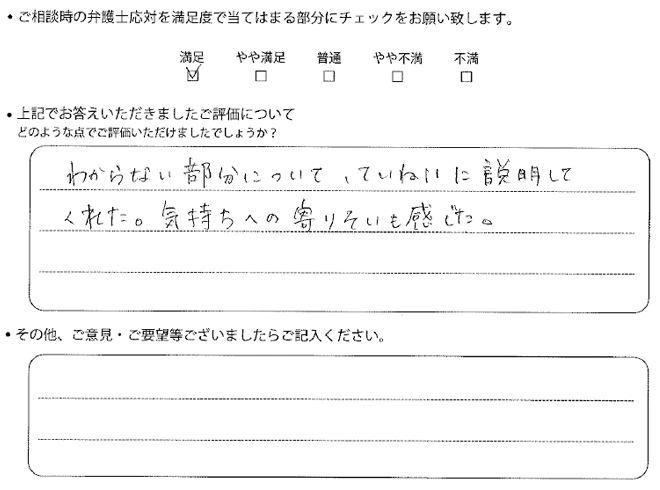 ・ご相談時の弁護士応対を満足度で当てはまる部分にチェックをお願い致します。
満足 やや満足 普通 やや不満 不満
☑ □ □ □ □
・上記でお答えいただきましたご評価について
どのような点でご評価いただけましたでしょうか？
わからない部分について、ていねいに説明して
くれた。気持ちへの寄りそいも感じた。
・その他、ご意見・ご要望等ございましたらご記入ください。